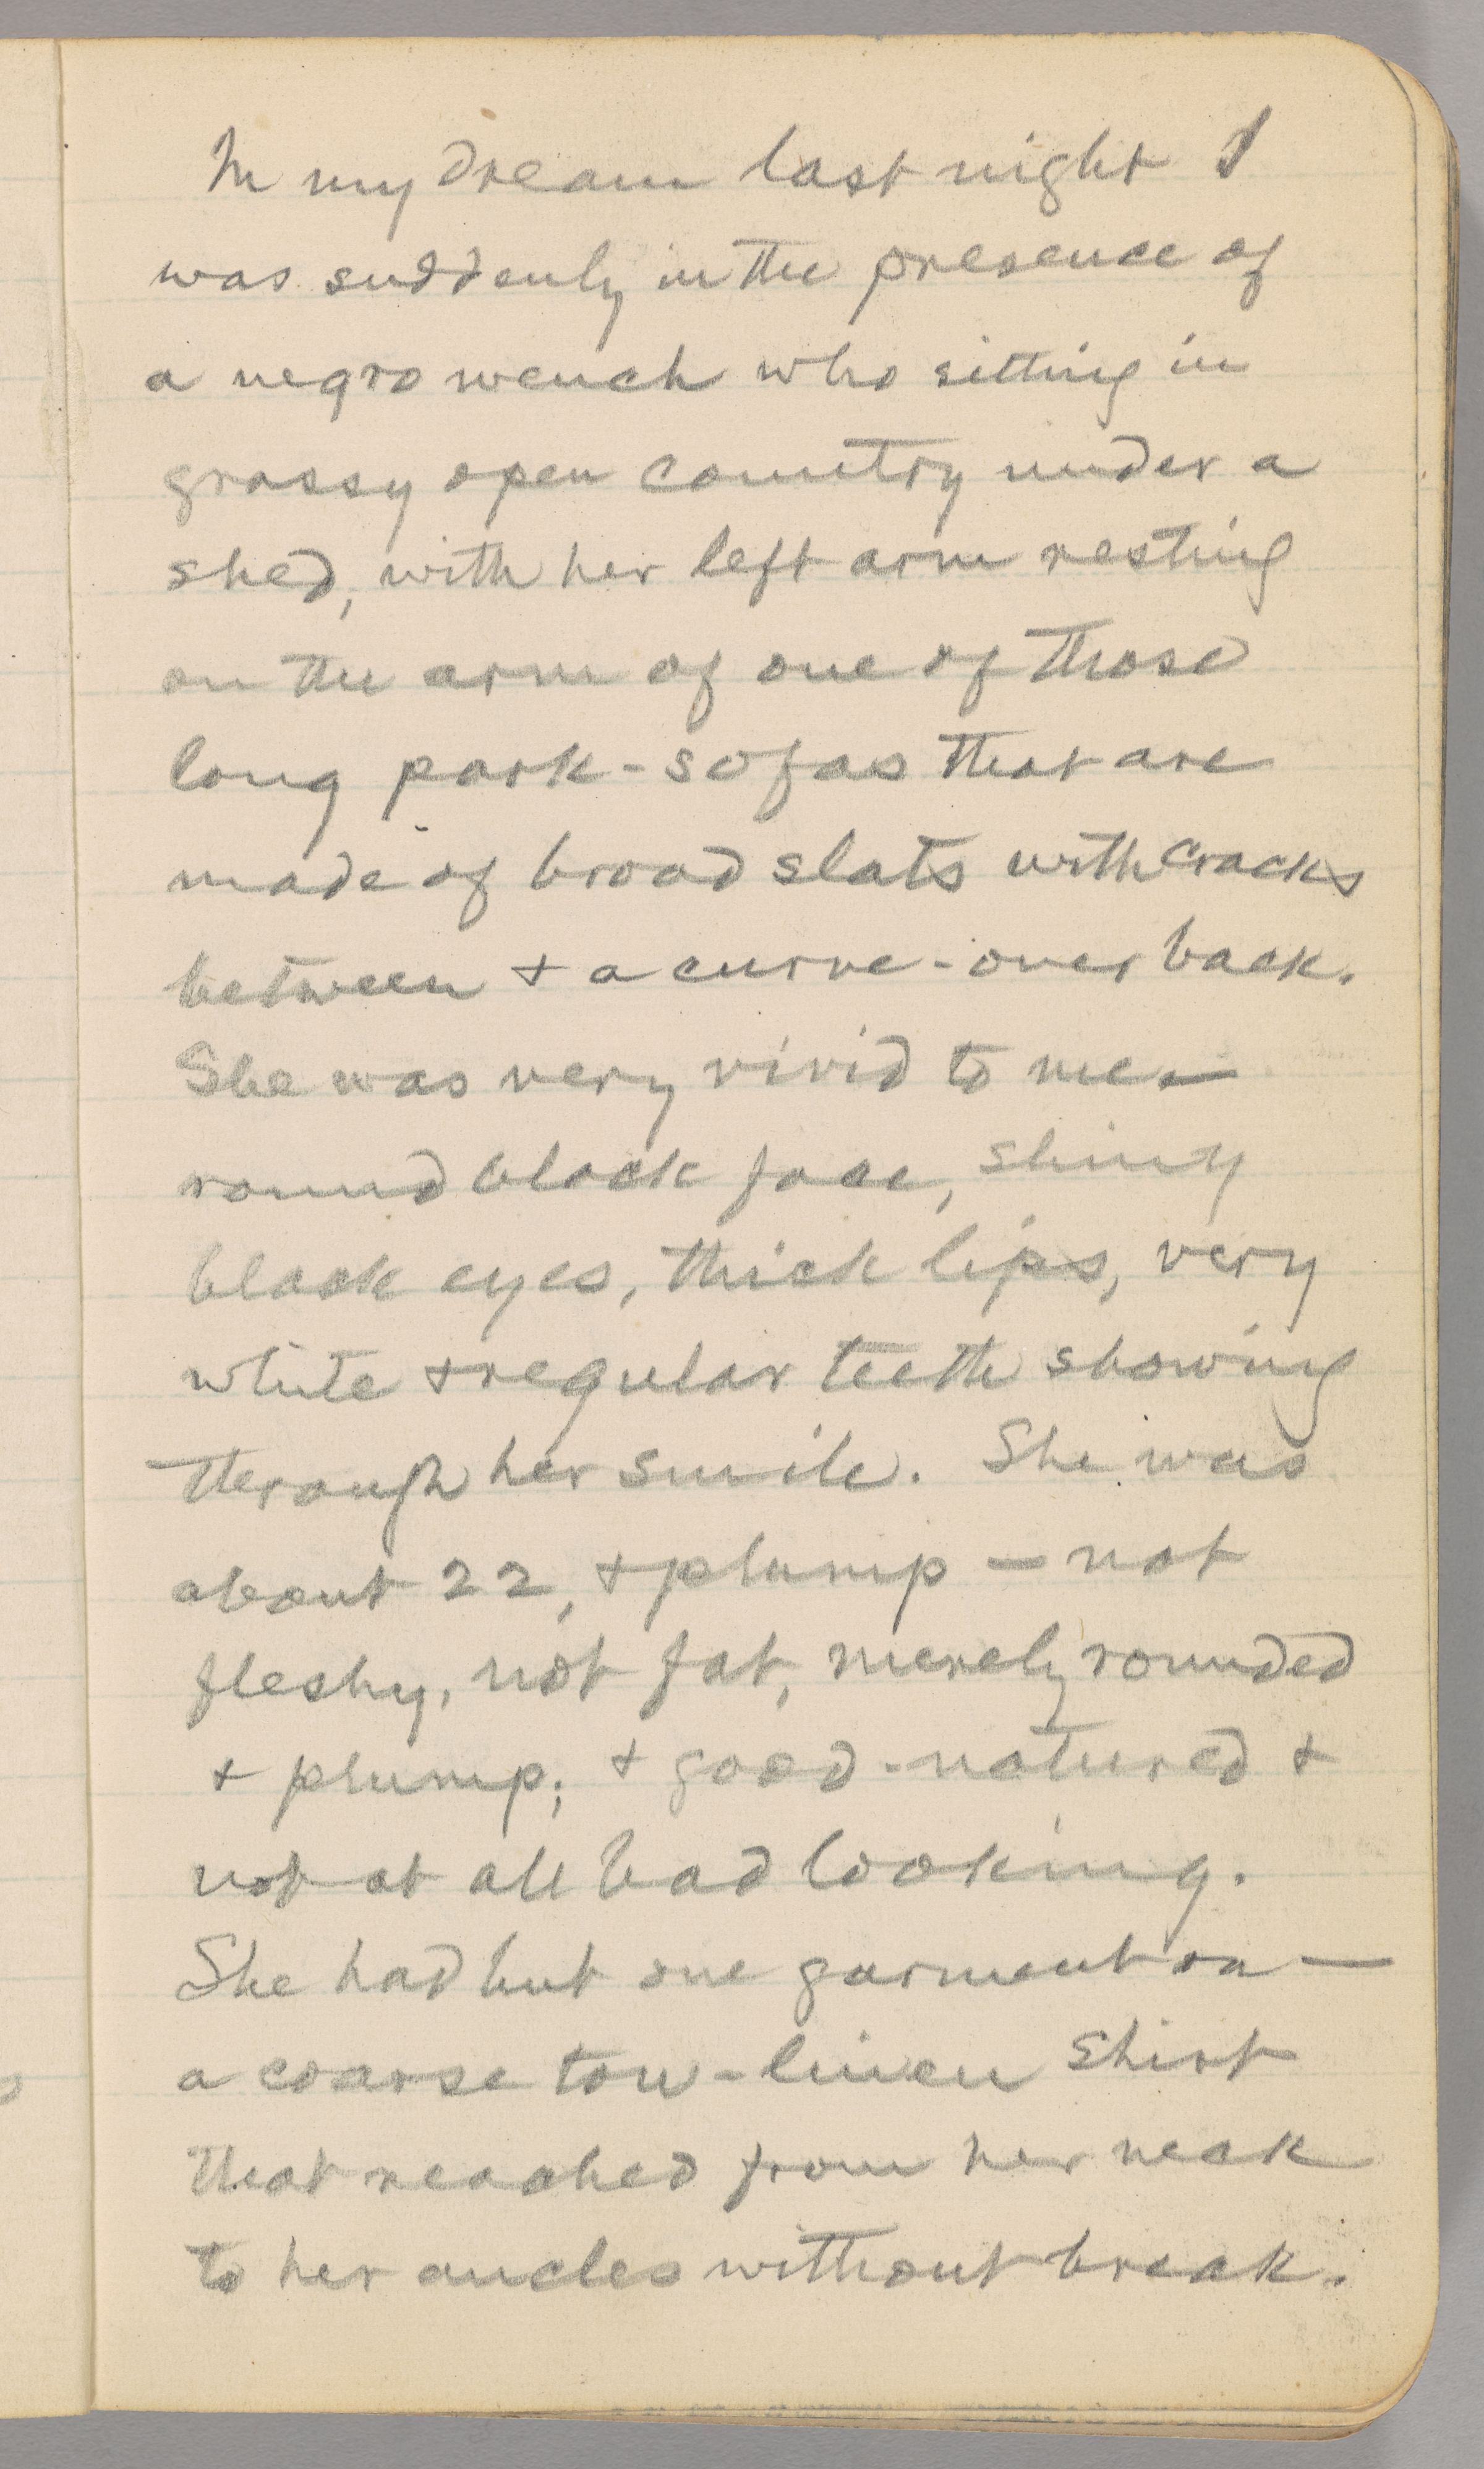 In my dream last night I
was suddenly in the presence of
a negro wench who sitting in
grassy open country under a
shed, with her left arm resting
on the arm of one of those
long park-sofas that are
made of broad slats with cracks
between + a curve-over back.
She was very vivid to me —
round black face, shiny
black eyes, thick lips, very
white + regular teeth showing
through her smile. She was
about 22, + plump — not
fleshy, not fat, merely rounded
+ plump; + good-natured +
not at all bad looking.
She had but one garment on —
a coarse tow-linen shirt
that reached from her neck
to her ancles without break.